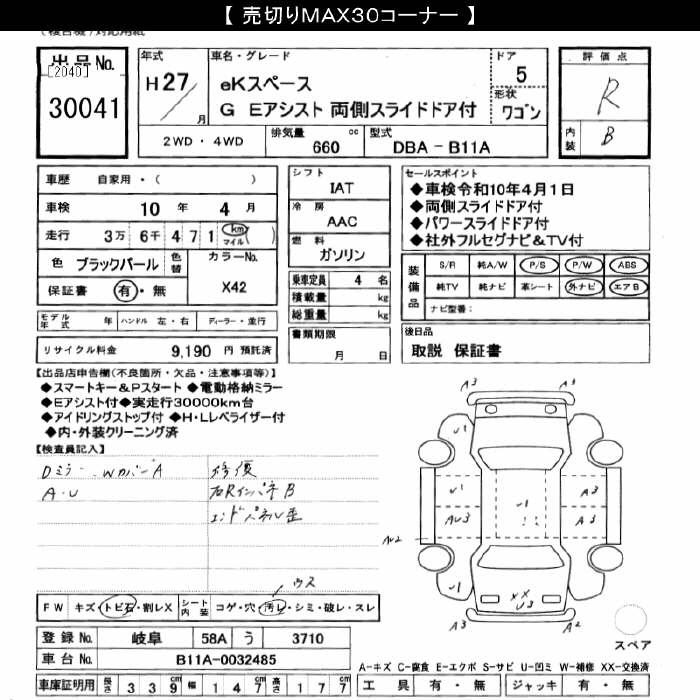 【 売切りMAX30コーナー 】
出品No.
[2040]
30041
年式
H27/月
車名・グレード
eKスペース
G Eアシスト 両側スライドドア付
ドア
5
形状
ワゴン
2WD ・ 4WD
排気量 660 cc
型式 DBA － B11A
評価点
R
内装 B
車歴 自家用・( )
車検 10 年 4 月
走行 3万 6千 4 7 1 km マイル ( )
色 ブラックパール 色替
カラーNo.
X42
保証書 有・無
モデル年式 年 ハンドル 左・右 ディーラー・並行
リサイクル料金 9,190 円 預託済
シフト
IAT
冷房
AAC
燃料
ガソリン
乗車定員 4 名
積載量 kg
総重量 kg
書類期限
月 日
セールスポイント
◆車検令和10年4月1日
◆両側スライドドア付
◆パワースライドドア付
◆社外フルセグナビ&TV付
装備品
S/R 純A/W P/S P/W ABS
純TV 純ナビ 革シート 外ナビ エアB
ナビ型番：
後日品
取説 保証書
【出品店申告欄(不良箇所・欠品・注意事項等)】
◆スマートキー&Pスタート ◆電動格納ミラー
◆Eアシスト付◆実走行30000km台
◆アイドリングストップ付 ◆H・Lレベライザー付
◆内・外装クリーニング済
【検査員記入】
Dミラー、WカバーA
A・U
修復
右RインパネB
エンドパネル歪
ウス
FW キズ・トビ石・割レX
シート内装 コゲ・穴・汚レ・シミ・破レ・スレ
登録No. 岐阜 58A う 3710
車台No. B11A-0032485
車庫証明用 長さ 3 3 9 cm 幅 1 4 7 cm 高さ 1 7 7 cm
A3
A3
U1
U1
A3
AU3
U1
A3
AU2
U1
XX
U3
A3
A2
スペア
A-キズ C-腐食 E-エクボ S-サビ U-凹ミ W-補修 XX-交換済
工具 有・無 ジャッキ 有・無